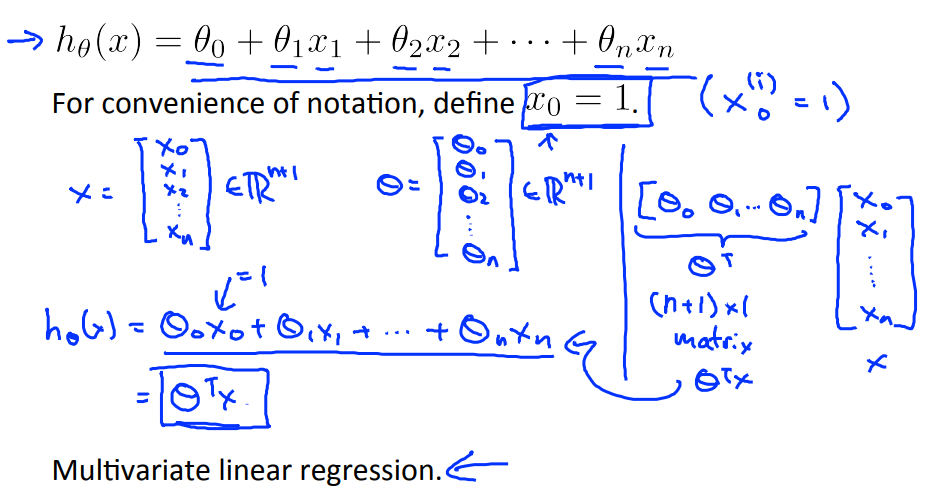 → hθ(x) = θ0 + θ1x1 + θ2x2 + ··· + θnxn
For convenience of notation, define x0 = 1. (x0^(i) = 1)
x = [x0 x1 x2 ⋮ xn] ∈ ℝ^(n+1) θ = [θ0 θ1 θ2 ⋮ θn] ∈ ℝ^(n+1)
[θ0 θ1 ··· θn] [x0 x1 ⋮ xn]
θ^T
(n+1) x 1
matrix
θ^T x
x
= 1
hθ(x) = θ0x0 + θ1x1 + ··· + θnxn
= θ^T x
Multivariate linear regression.